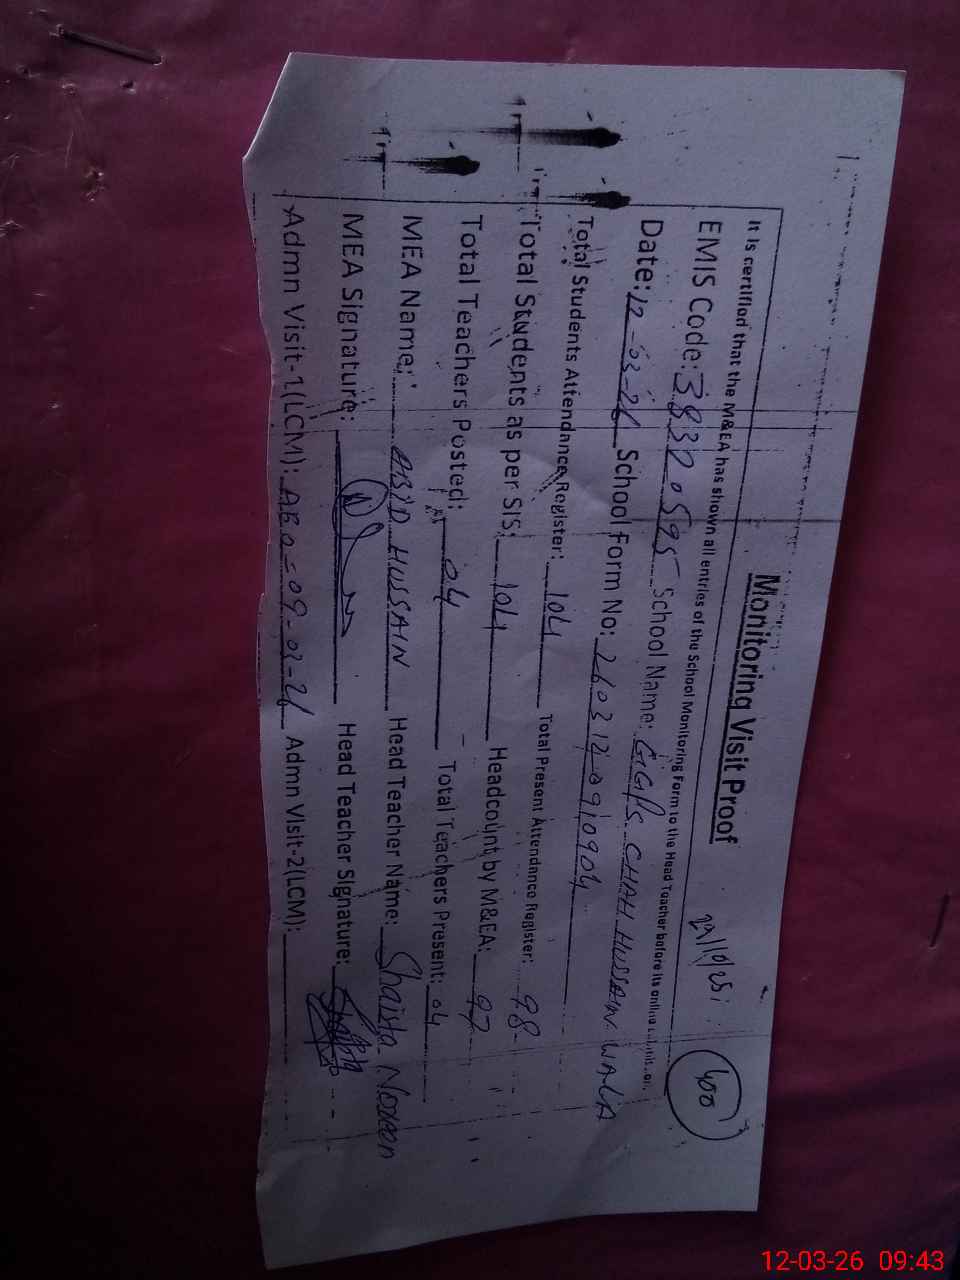 Monitoring Visit Proof
22/10/25
400
It is certified that the M&EA has shown all entries of the School Monitoring Form to the Head Teacher before its online submission.
EMIS Code: 38320595 School Name: GGPS CHAH HUSSAIN WALA
Date: 12-03-26 School Form No: 2603120910904
Total Students Attendance Register: 104 Total Present Attendance Register: 98
Total Students as per SIS: 104 Headcount by M&EA: 97
Total Teachers Posted: 04 Total Teachers Present: 04
MEA Name: ABID HUSSAIN Head Teacher Name: Shaista Noreen
MEA Signature: Head Teacher Signature:
Admn Visit-1(LCM): AEO-09-03-26 Admn Visit-2(LCM):
12-03-26 09:43